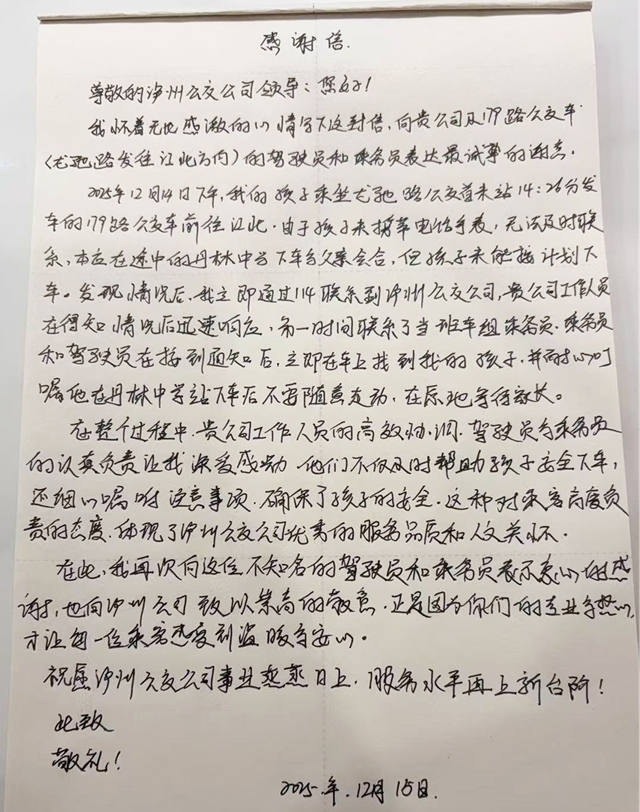 感谢信.
尊敬的泸州公交公司领导：您好！
我怀着无比感激的心情写下这封信，向贵公司及179路公交车
（龙驰路发往江北方向）的驾驶员和乘务员表达最诚挚的谢意.
2025年12月14日下午，我的孩子乘坐龙驰路公交首末站14：26分发
车的179路公交车前往江北.由于孩子未携带电话手表，无法及时联
系，本应在途中的丹林中学下车与父亲会合，但孩子未能按计划下
车。发现情况后，我立即通过114联系到泸州公交公司，贵公司工作人员
在得知情况后迅速响应，第一时间联系了当班车组乘务员.乘务员
和驾驶员在接到通知后，立即在车上找到我的孩子，并耐心叮
嘱他在丹林中学站下车后不要随意走动，在原地等待家长。
在整个过程中，贵公司工作人员的高效协调.驾驶员与乘务员
的认真负责让我深受感动.他们不仅及时帮助孩子安全下车，
还细心嘱咐注意事项.确保了孩子的安全.这种对乘客高度负
责的态度.体现了泸州公交公司优秀的服务品质和人文关怀.
在此，我再次向这位不知名的驾驶员和乘务员表示衷心的感
谢，也向泸州公司致以崇高的敬意.正是因为你们的专业与热心，
才让每一位乘客感受到温暖与安心。
祝愿泸州公交公司事业蒸蒸日上，服务水平再上新台阶！
此致
敬礼！
2025.年.12月15日.